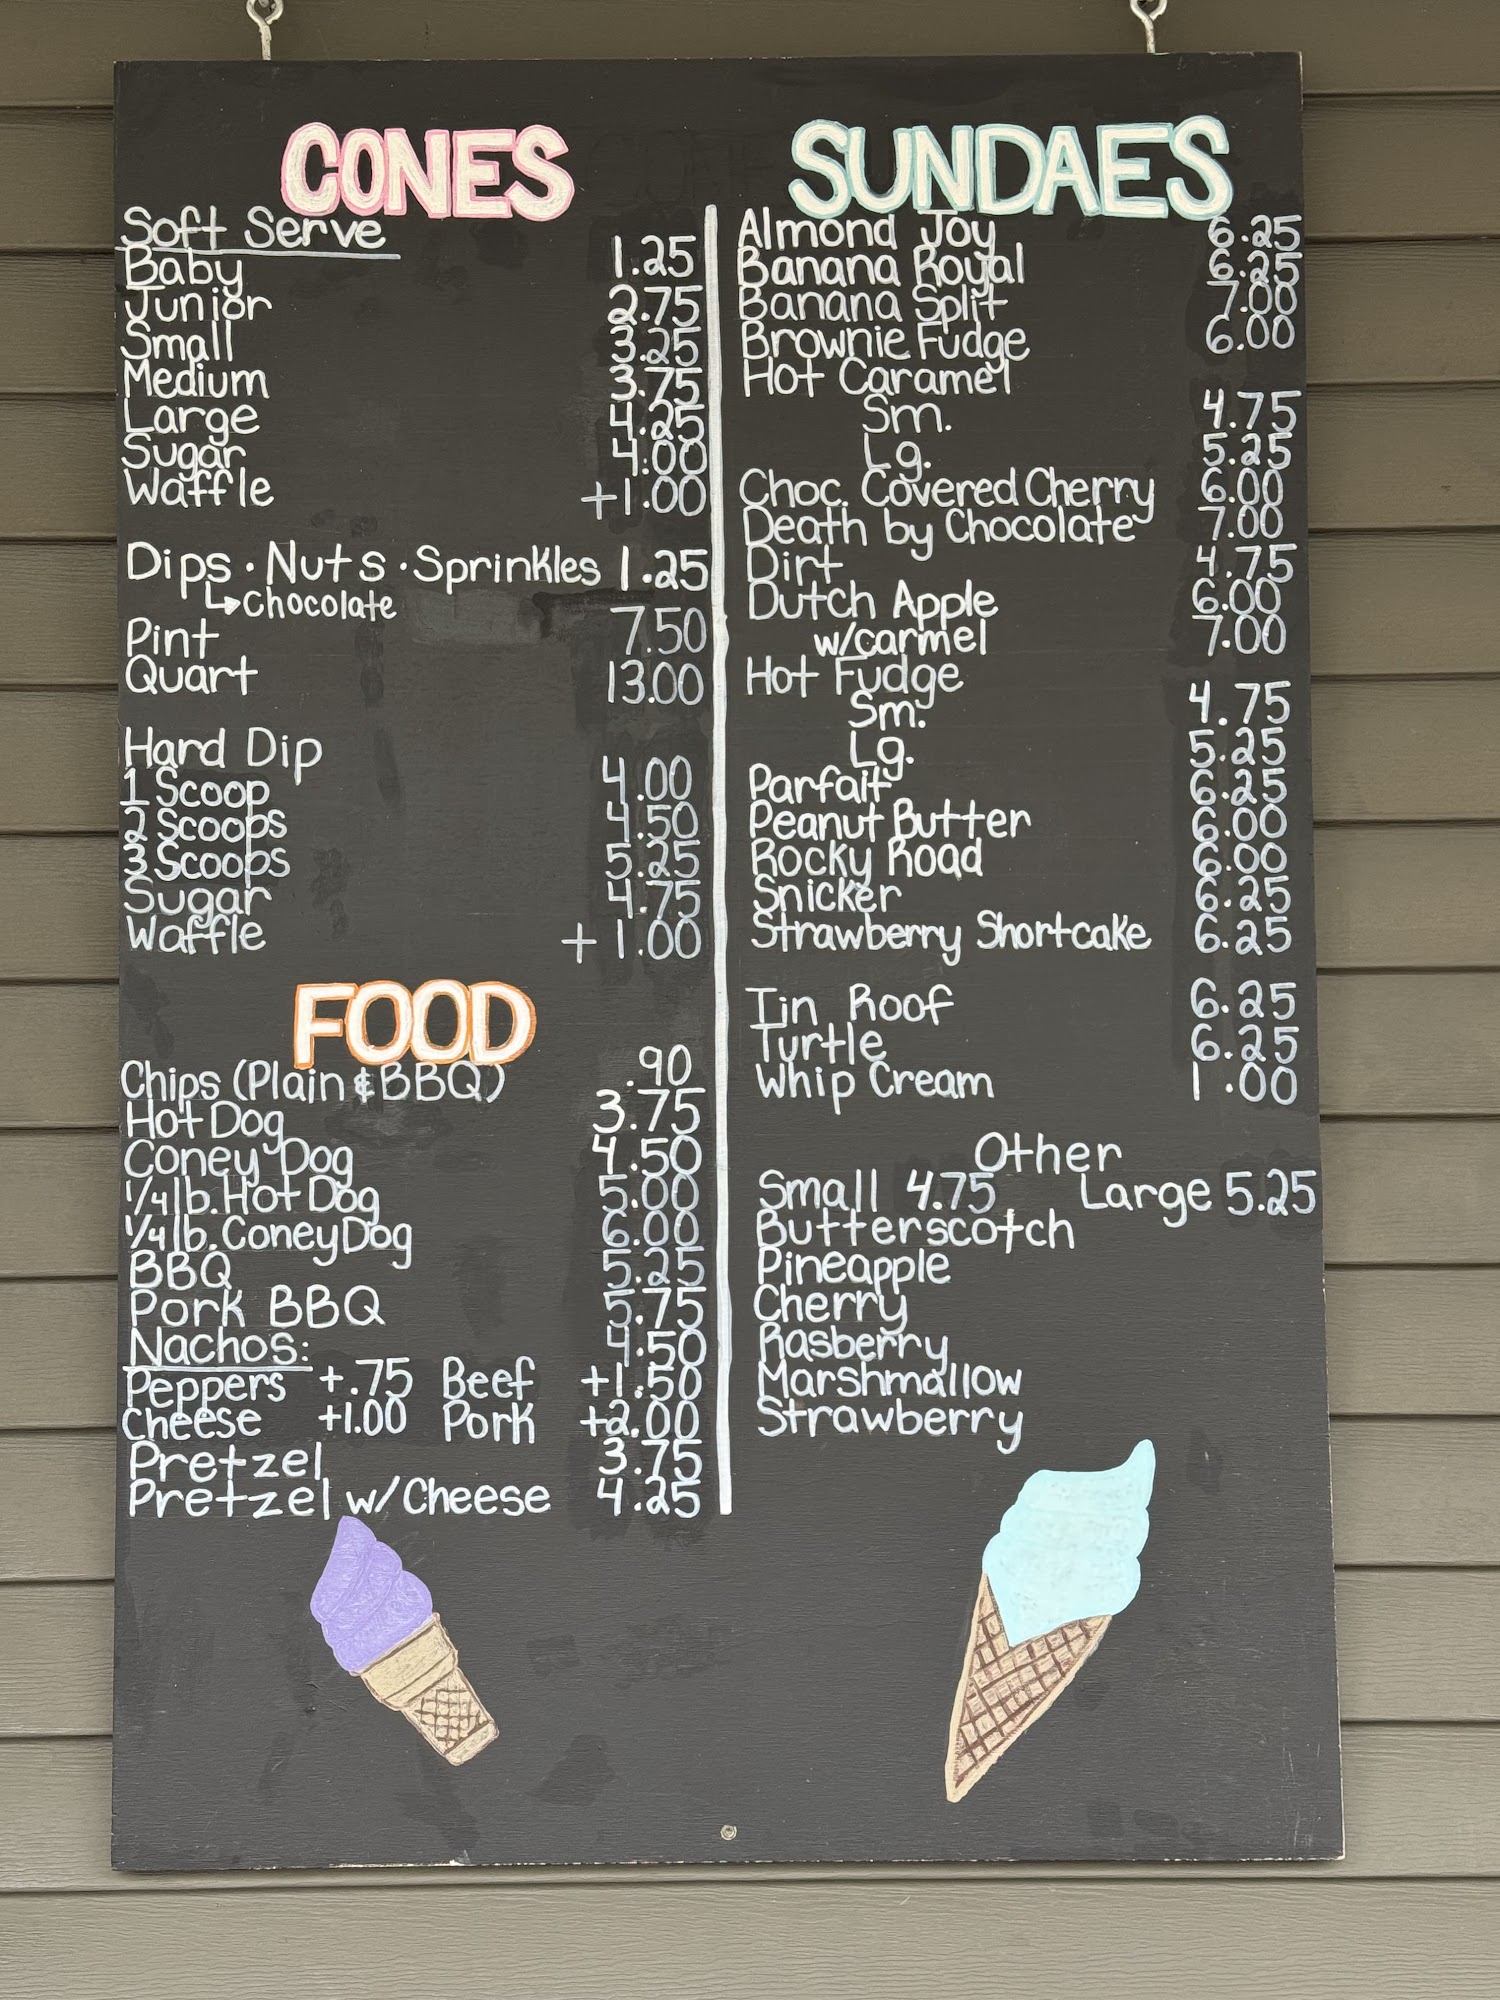 CONES
Soft Serve
Baby 1.25
Junior 2.75
Small 3.25
Medium 3.75
Large 4.25
Sugar 4.00
Waffle +1.00
Dips · Nuts · Sprinkles 1.25
↳ Chocolate
Pint 7.50
Quart 13.00
Hard Dip
1 Scoop 4.00
2 Scoops 4.50
3 Scoops 5.25
Sugar 4.75
Waffle + 1.00
FOOD
Chips (Plain & BBQ) .90
Hot Dog 3.75
Coney Dog 4.50
1/4 lb. Hot Dog 5.00
1/4 lb. Coney Dog 6.00
BBQ 5.25
Pork BBQ 5.75
Nachos: 4.50
Peppers +.75 Beef +1.50
Cheese +1.00 Pork +2.00
Pretzel 3.75
Pretzel w/Cheese 4.25
SUNDAES
Almond Joy 6.25
Banana Royal 6.25
Banana Split 7.00
Brownie Fudge 6.00
Hot Caramel
Sm. 4.75
Lg. 5.25
Choc. Covered Cherry 6.00
Death by Chocolate 7.00
Dirt 4.75
Dutch Apple 6.00
w/carmel 7.00
Hot Fudge
Sm. 4.75
Lg. 5.25
Parfait 6.25
Peanut Butter 6.00
Rocky Road 6.00
Snicker 6.25
Strawberry Shortcake 6.25
Tin Roof 6.25
Turtle 6.25
Whip Cream 1.00
Other
Small 4.75 Large 5.25
Butterscotch
Pineapple
Cherry
Rasberry
Marshmallow
Strawberry